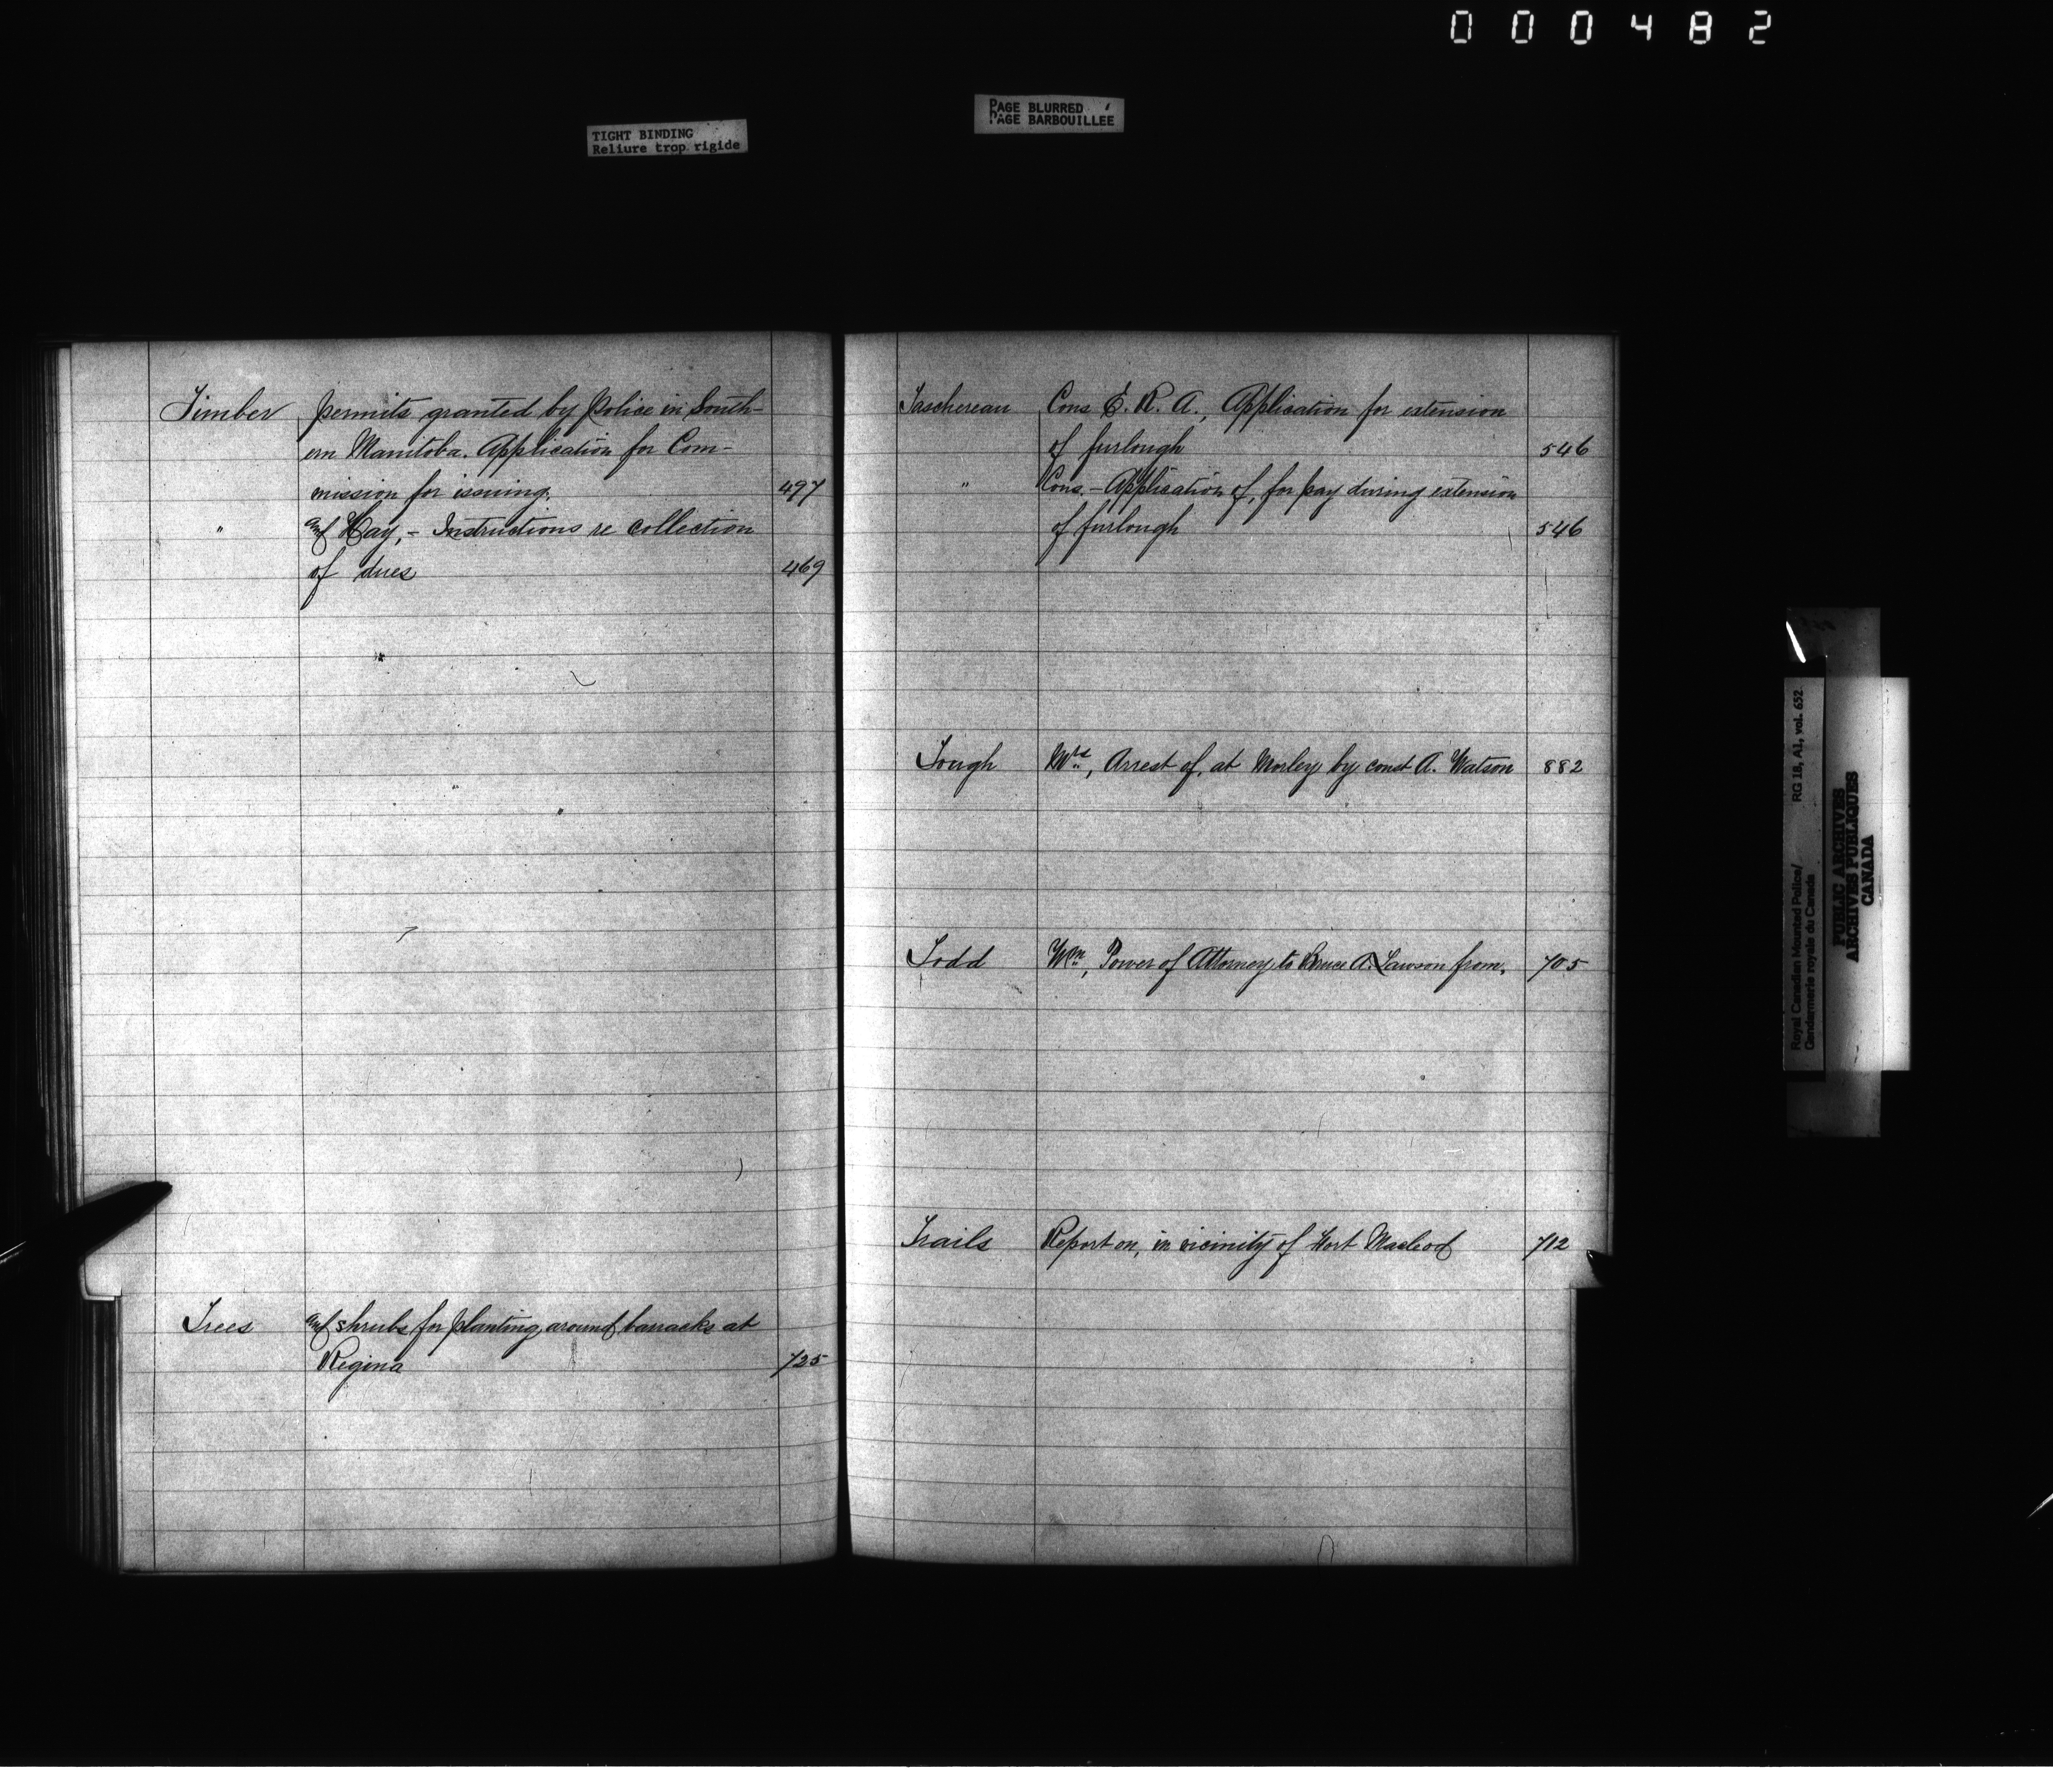 000482
TIGHT BINDING
Reliure trop rigide
PAGE BLURRED
PAGE BARBOUILLÉE
Timber permits granted by Police in South-
ern Manitoba. Application for Com-
mission for issuing. 497
" and Hay, - Instructions re collection
of dues 469
Trees and shrubs for planting around barracks at
Regina 725
Taschereau Cons. E. R. A., Application for extension
of furlough 546
" Cons. - Application of, for pay during extension
of furlough 546
Tough Arrest of, at Morley by const A. Watson 882
Todd Wm, Power of Attorney to Bruce A. Lawson from. 705
Trails Report on, in vicinity of Fort Macleod 712
Royal Canadian Mounted Police/
Gendarmerie royale du Canada
RG 18, A1, vol. 652
PUBLIC ARCHIVES
ARCHIVES PUBLIQUES
CANADA